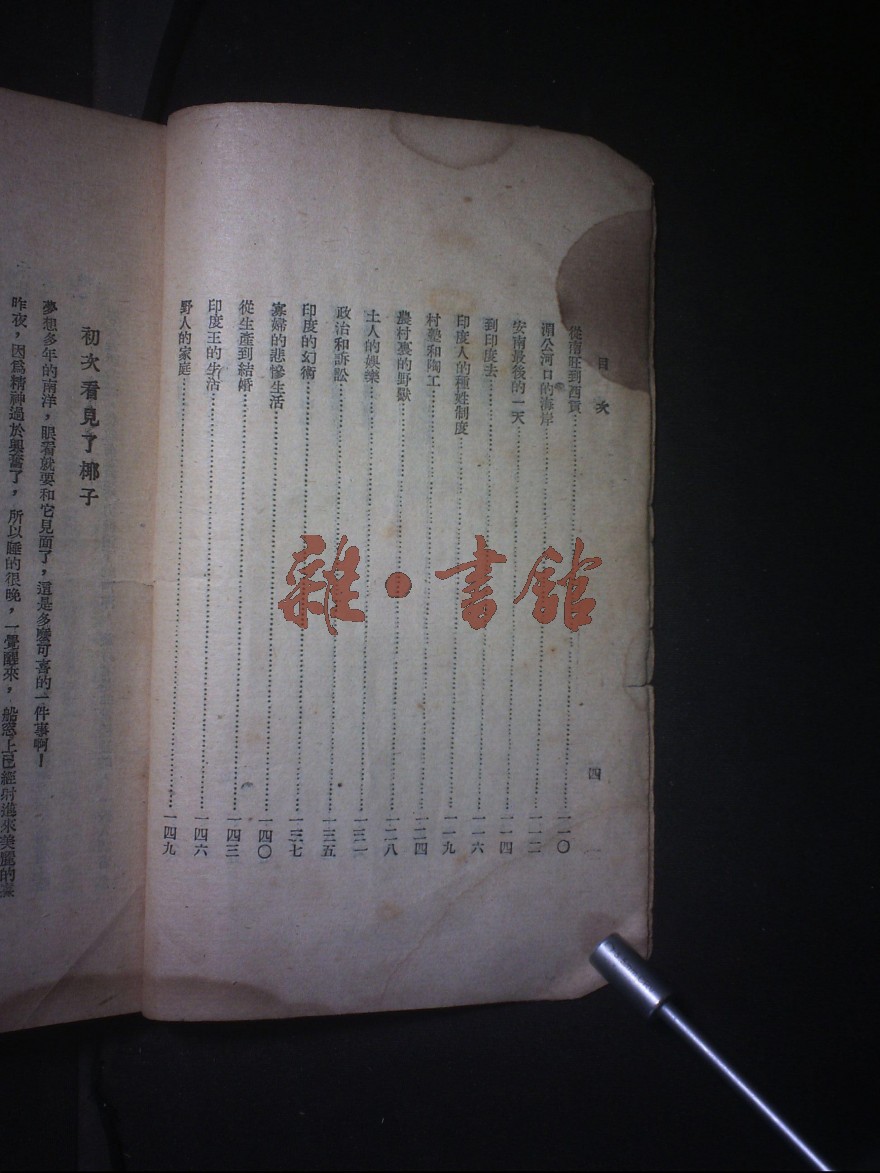 目次
四
從南旺到西貢⋯⋯一一〇
湄公河口的海岸⋯⋯一一二
安南最後的一天⋯⋯一一四
到印度去⋯⋯一一六
印度人的種姓制度⋯⋯一一九
村塾和陶工⋯⋯一二四
農村裏的野獸⋯⋯一二八
土人的娛樂⋯⋯一三一
政治和訴訟⋯⋯一三五
印度的幻術⋯⋯一三七
寡婦的悲慘生活⋯⋯一四〇
從生產到結婚⋯⋯一四三
印度王的生活⋯⋯一四六
野人的家庭⋯⋯一四九
初次看見了椰子
夢想多年的南洋，眼看就要和它見面了，這是多麼可喜的一件事啊！
昨夜，因爲精神過於興奮了，所以睡的很晚，一覺醒來，船窓上已經射進來美麗的
雜·書館